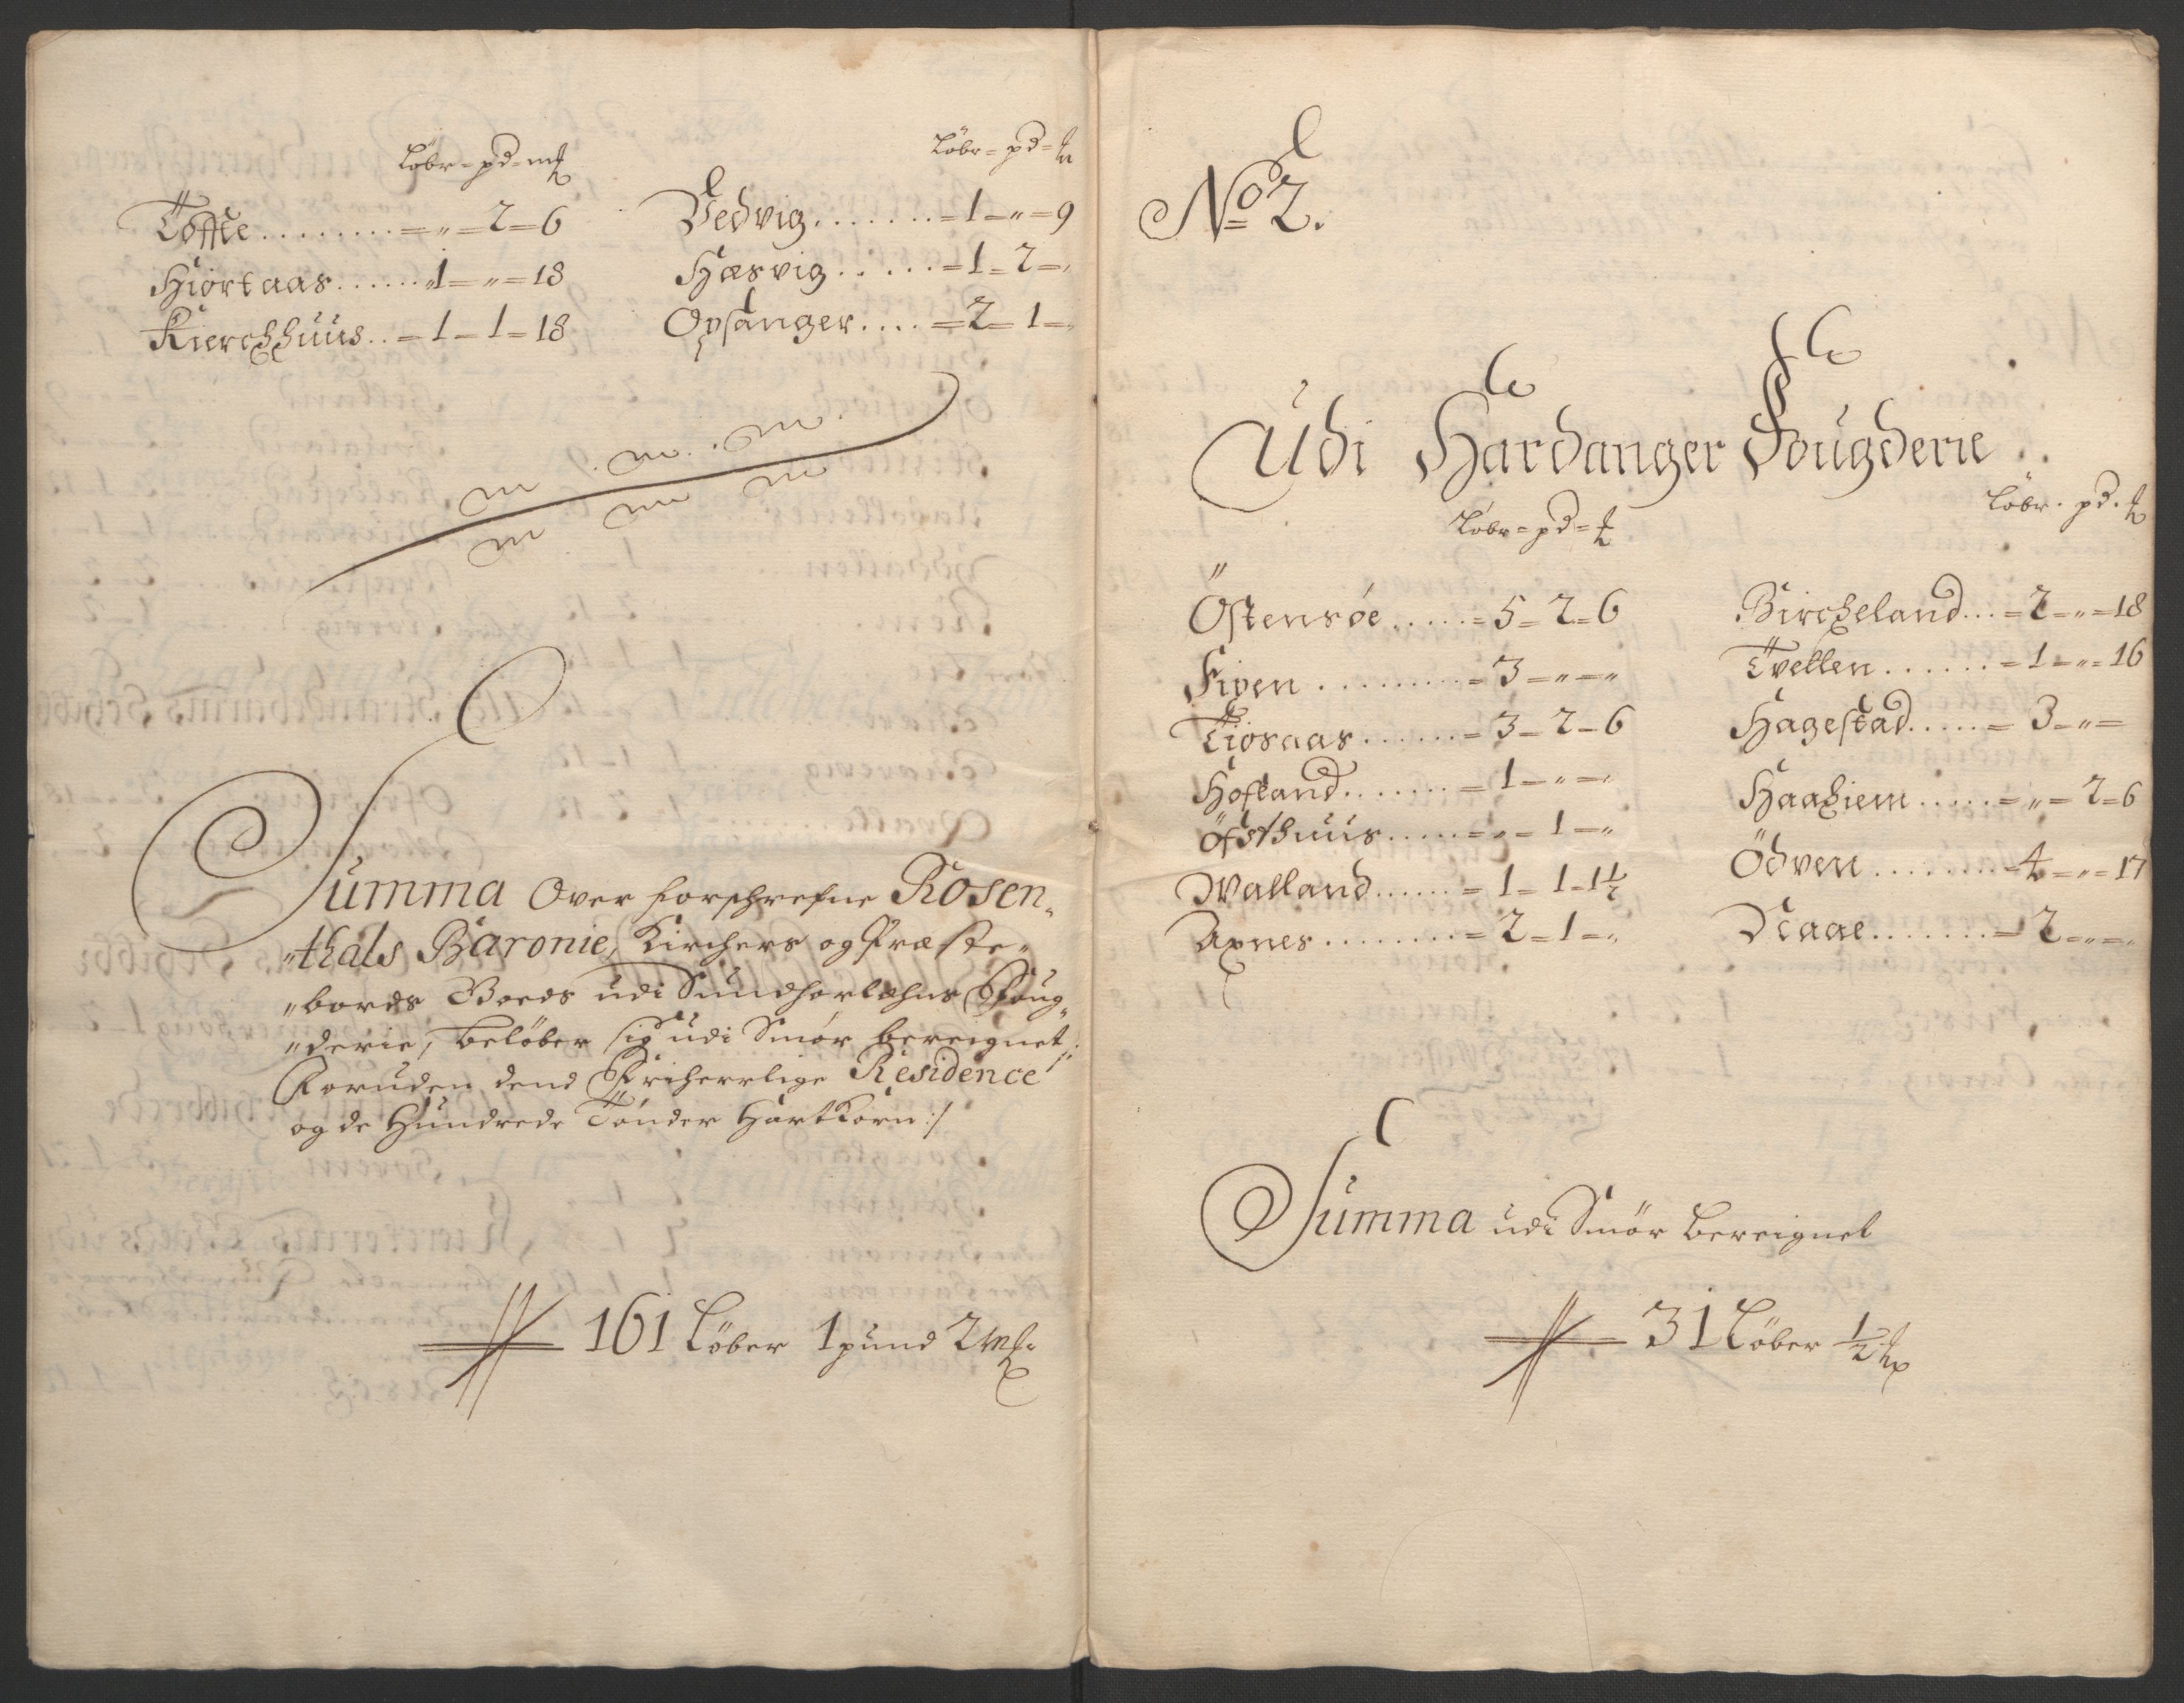 Löbr = pd = m℔
Töffte ......... = „ = 2 = 6
Hiortaas ...... „ 1 = „ = 18
Kierchhuus .. = 1 = 1 = 18
Löbr = pd = ℔
Vedvig ....... = 1 = „ = 9
Hæsvig ...... = 1 = 2 = „
Opsanger .... = 2 = 1 = „
Summa Over forschrefne Rosen„
„thals Baronie, Kirchers og Præste„
„bords Goeds udi Sundhorlehns Foug„
„derie, beløber sig udi Smör bereignet:
Foruden dend Friherrlige Residence
og de Hundrede Tönder Hartkorn :/
161 Löber 1 pund 2 m℔
No 2.
Udi Hardanger Fougderie
Löbr = pd = ℔
Östensöe ..... = 5 = 2 = 6
Fiven ......... = 3 = „ = „
Tiosaas ...... = 3 = 2 = 6
Hofland ....... = 1 = „ = „
Ofsthuus ..... = „ = 1 = „
Walland ...... = 1 = 1 = 1½
Axnes ........ = 2 = 1 = „
Löbr. pd. ℔
Bircheland ... = 2 = „ = 18
Tvetten ...... = 1 = „ = 16
Hagestad ..... = 3 = „ =
Haahiem ..... = „ = 2 = 6
Ödven ........ = 4 = „ = 17
Naae ....... = 2 = „ = „
Summa udi Smör bereignet
31 Löber ½ ℔